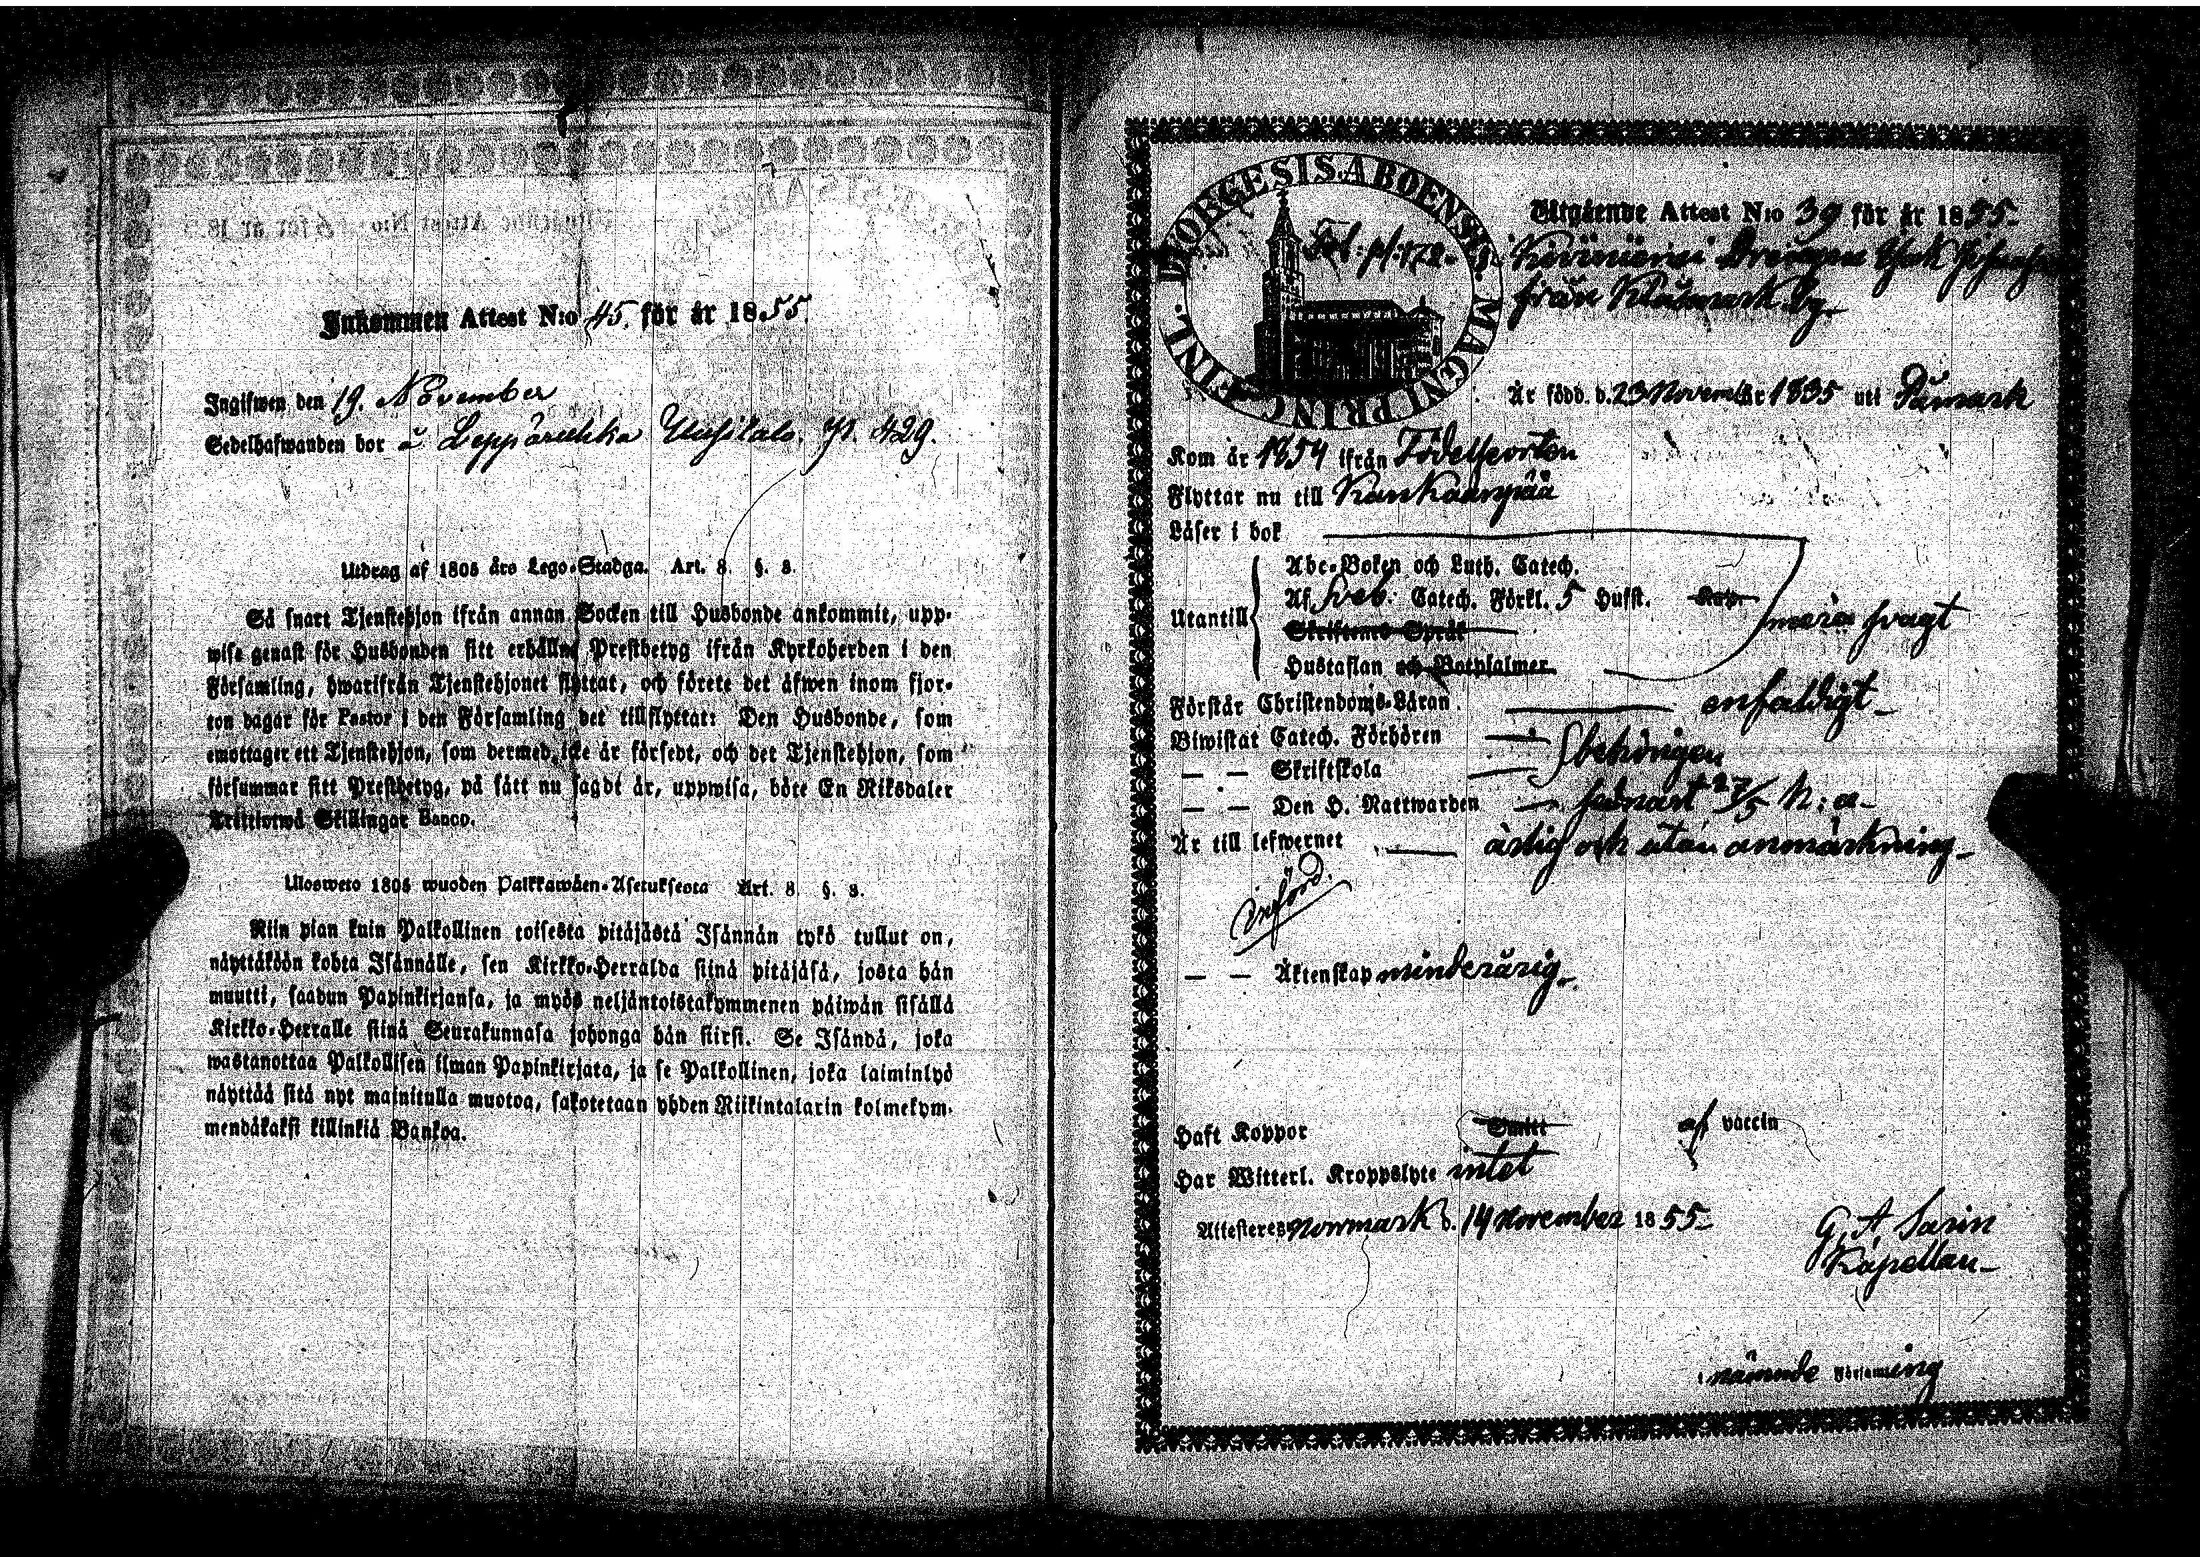 Inkommen Attest N:o 45. för år 1855.
Ingifwen den 19. November
Sedelhafwanden bor å Leppäruhka Uusitalo. p. 429.
Utdrag af 1805 års Lego-Stadga. Art. 8. §. 8.
Så snart Tjenstehjon ifrån annan Socken till Husbonde ankommit, upp-
wise genast för Husbonden sitt erhållna Prestbetyg ifrån Kyrkoherden i den
Församling, hwarifrån Tjenstehjonet flyttat, och förete det äfwen inom fjor-
ton dagar för Pastor i den Församling det tillflyttat: Den Husbonde, som
emottager ett Tjenstehjon, som dermed icke är försedt, och det Tjenstehjon, som
försummar sitt Prestbetyg, på sätt nu sagdt är, uppwisa, böte En Riksdaler
Trittiotwå Skillingar Banco.
Ulosweto 1805 wuoden Palkkawäen-Asetuksesta Art. 8. §. 8.
Niin pian kuin Palkollinen toisesta pitäjästä Isännän tykö tullut on,
näyttäköön kohta Isännälle, sen Kirkko-Herralda siinä pitäjäsä, josta hän
muutti, saadun Papinkirjansa, ja myös neljäntoistakymmenen päiwän sisällä
Kirkko-Herralle siinä Seurakunnasa johonga hän siirsi. Se Isändä, joka
wastanottaa Palkollisen ilman Papinkirjata, ja se Palkollinen, joka laiminlyö
näyttää sitä nyt mainitulla muotoa, sakotetaan yhden Riikintalarin kolmekym-
mendäkaksi killinkiä Bankoa.
DIORGESIS.ABOENSIS MAGNI PRINC. FINL.
Utgående Attest N:o 39 för år 1855.
Drengen
från by
Är född. d. 23 Novembr år 1835 uti Påmark
Kom år 1854 ifrån Födelseorten
Flyttar nu till Kankaanpää
Läser i bok
Abc-Boken och Luth. Catech.
Utantill Af Sveb. Catech. Förkl. 5 Hufst. Kap.
Skriftenes Språk
Hustaflan och Botpsalmer
svagt
Förstår Christendoms-Läran enfaldigt
Biwistat Catech. Förhören
— — Skriftskola behörigen
— — Den H. Nattwarden senast 27/5 h: a
Är till lefwernet ärlig och utan anmärkning
införd.
— — Äktenskap minderårig
Haft Koppor Smitt af vaccin
Har Witterl. Kroppslyte intet
Attesteres Norrmark d. 14 November 1855
G. A. Sarin
Kapellan
nämnde Församling